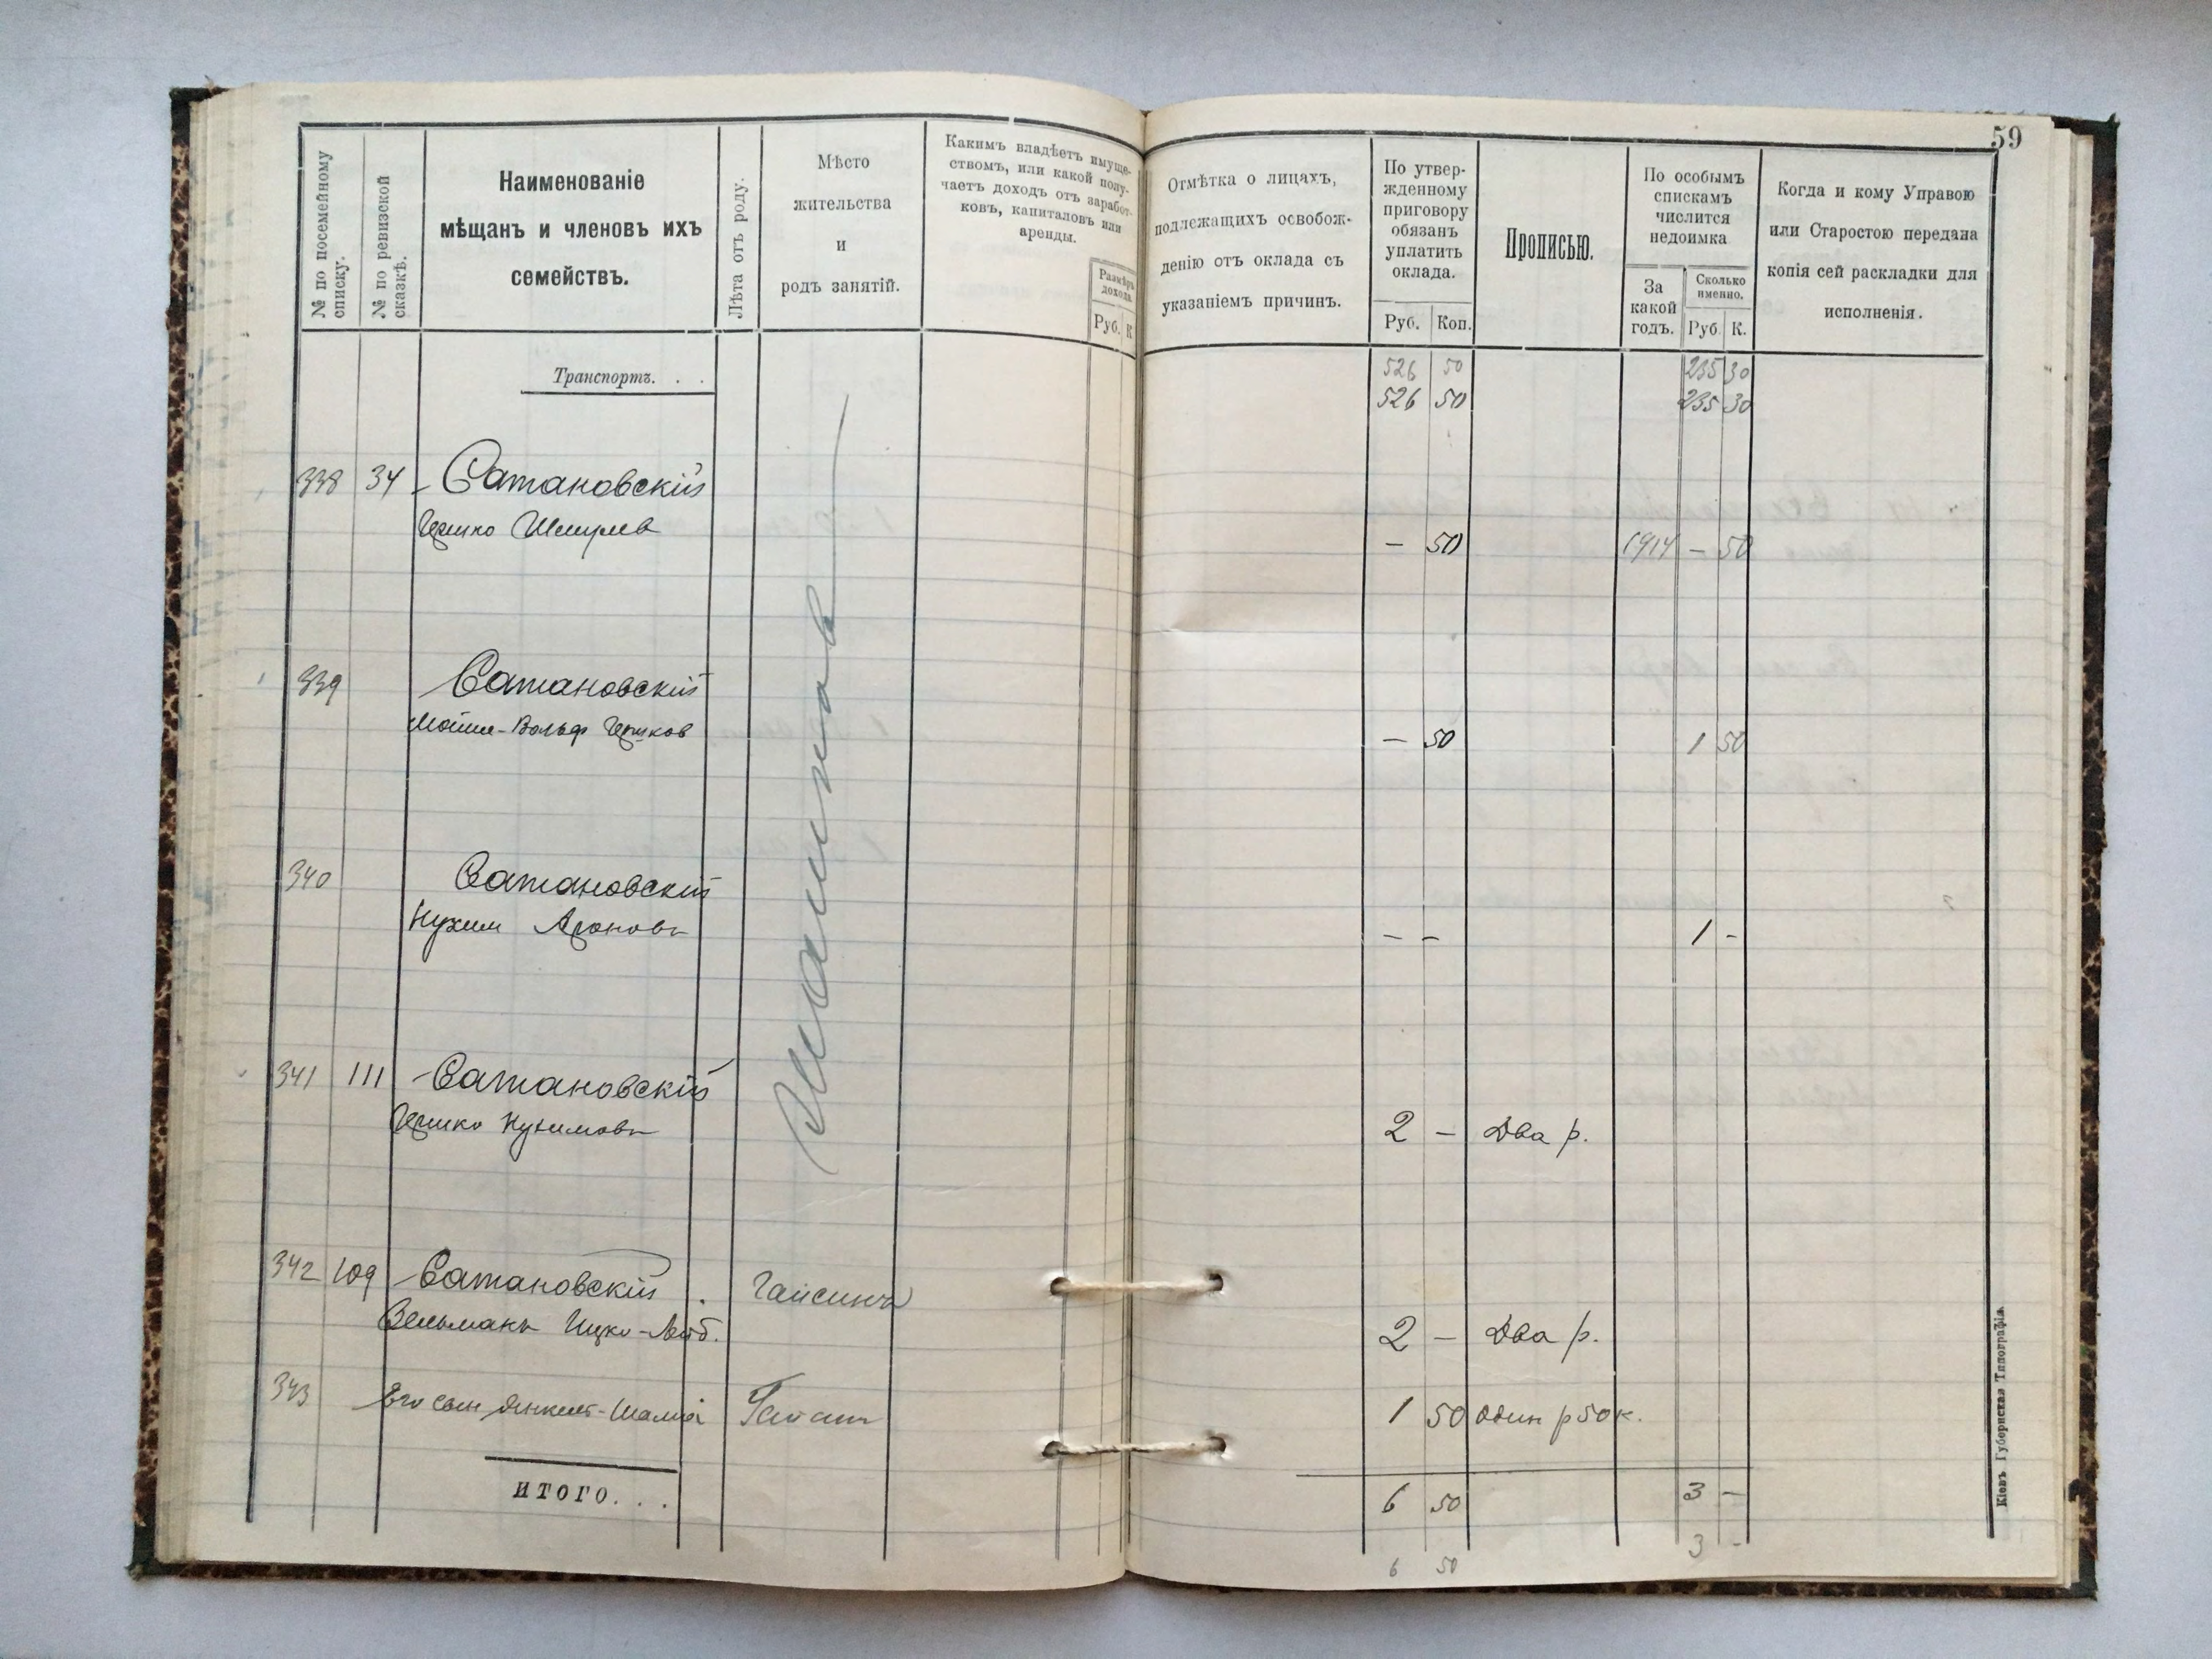 59
№ по посемейному списку.
№ по ревизской сказкѣ.
Наименованіе
мѣщанъ и членовъ ихъ
семействъ.
Лѣта отъ роду.
Мѣсто
жительства
и
родъ занятій.
Какимъ владѣетъ имуще-
ствомъ, или какой полу-
чаетъ доходъ отъ заработ-
ковъ, капиталовъ или
аренды.
Размѣръ
дохода.
Руб. К
Отмѣтка о лицахъ,
подлежащихъ освобож-
денію отъ оклада съ
указаніемъ причинъ.
По утвер-
жденному
приговору
обязанъ
уплатить
оклада.
Руб. Коп.
Прописью.
По особымъ
спискамъ
числится
недоимка
За
какой
годъ.
Сколько
именно.
Руб. К.
Когда и кому Управою
или Старостою передана
копія сей раскладки для
исполненія.
526 50 235 30
Транспортъ. . .
526 50 235 30
338 34 Сатановскій
Гершко Шмулев
— 50 1914 — 50
339 Сатановскій
Мошко-Вольф Гершков
— 50 1 50
340 Сатановскій
Нухим Ароновъ
— — 1 -
341 111 Сатановскій
Гершко Нухимовъ
2 — Два р.
342 109 Сатановскій Гайсинъ
Зельманъ Ицко-Лейб.
2 — Два р.
343 Его сын Янкель-
1 50 один р 50 к.
ИТОГО. . .
6 50 3 —
6 50 3 -
Кіевъ Губернская Типографія.